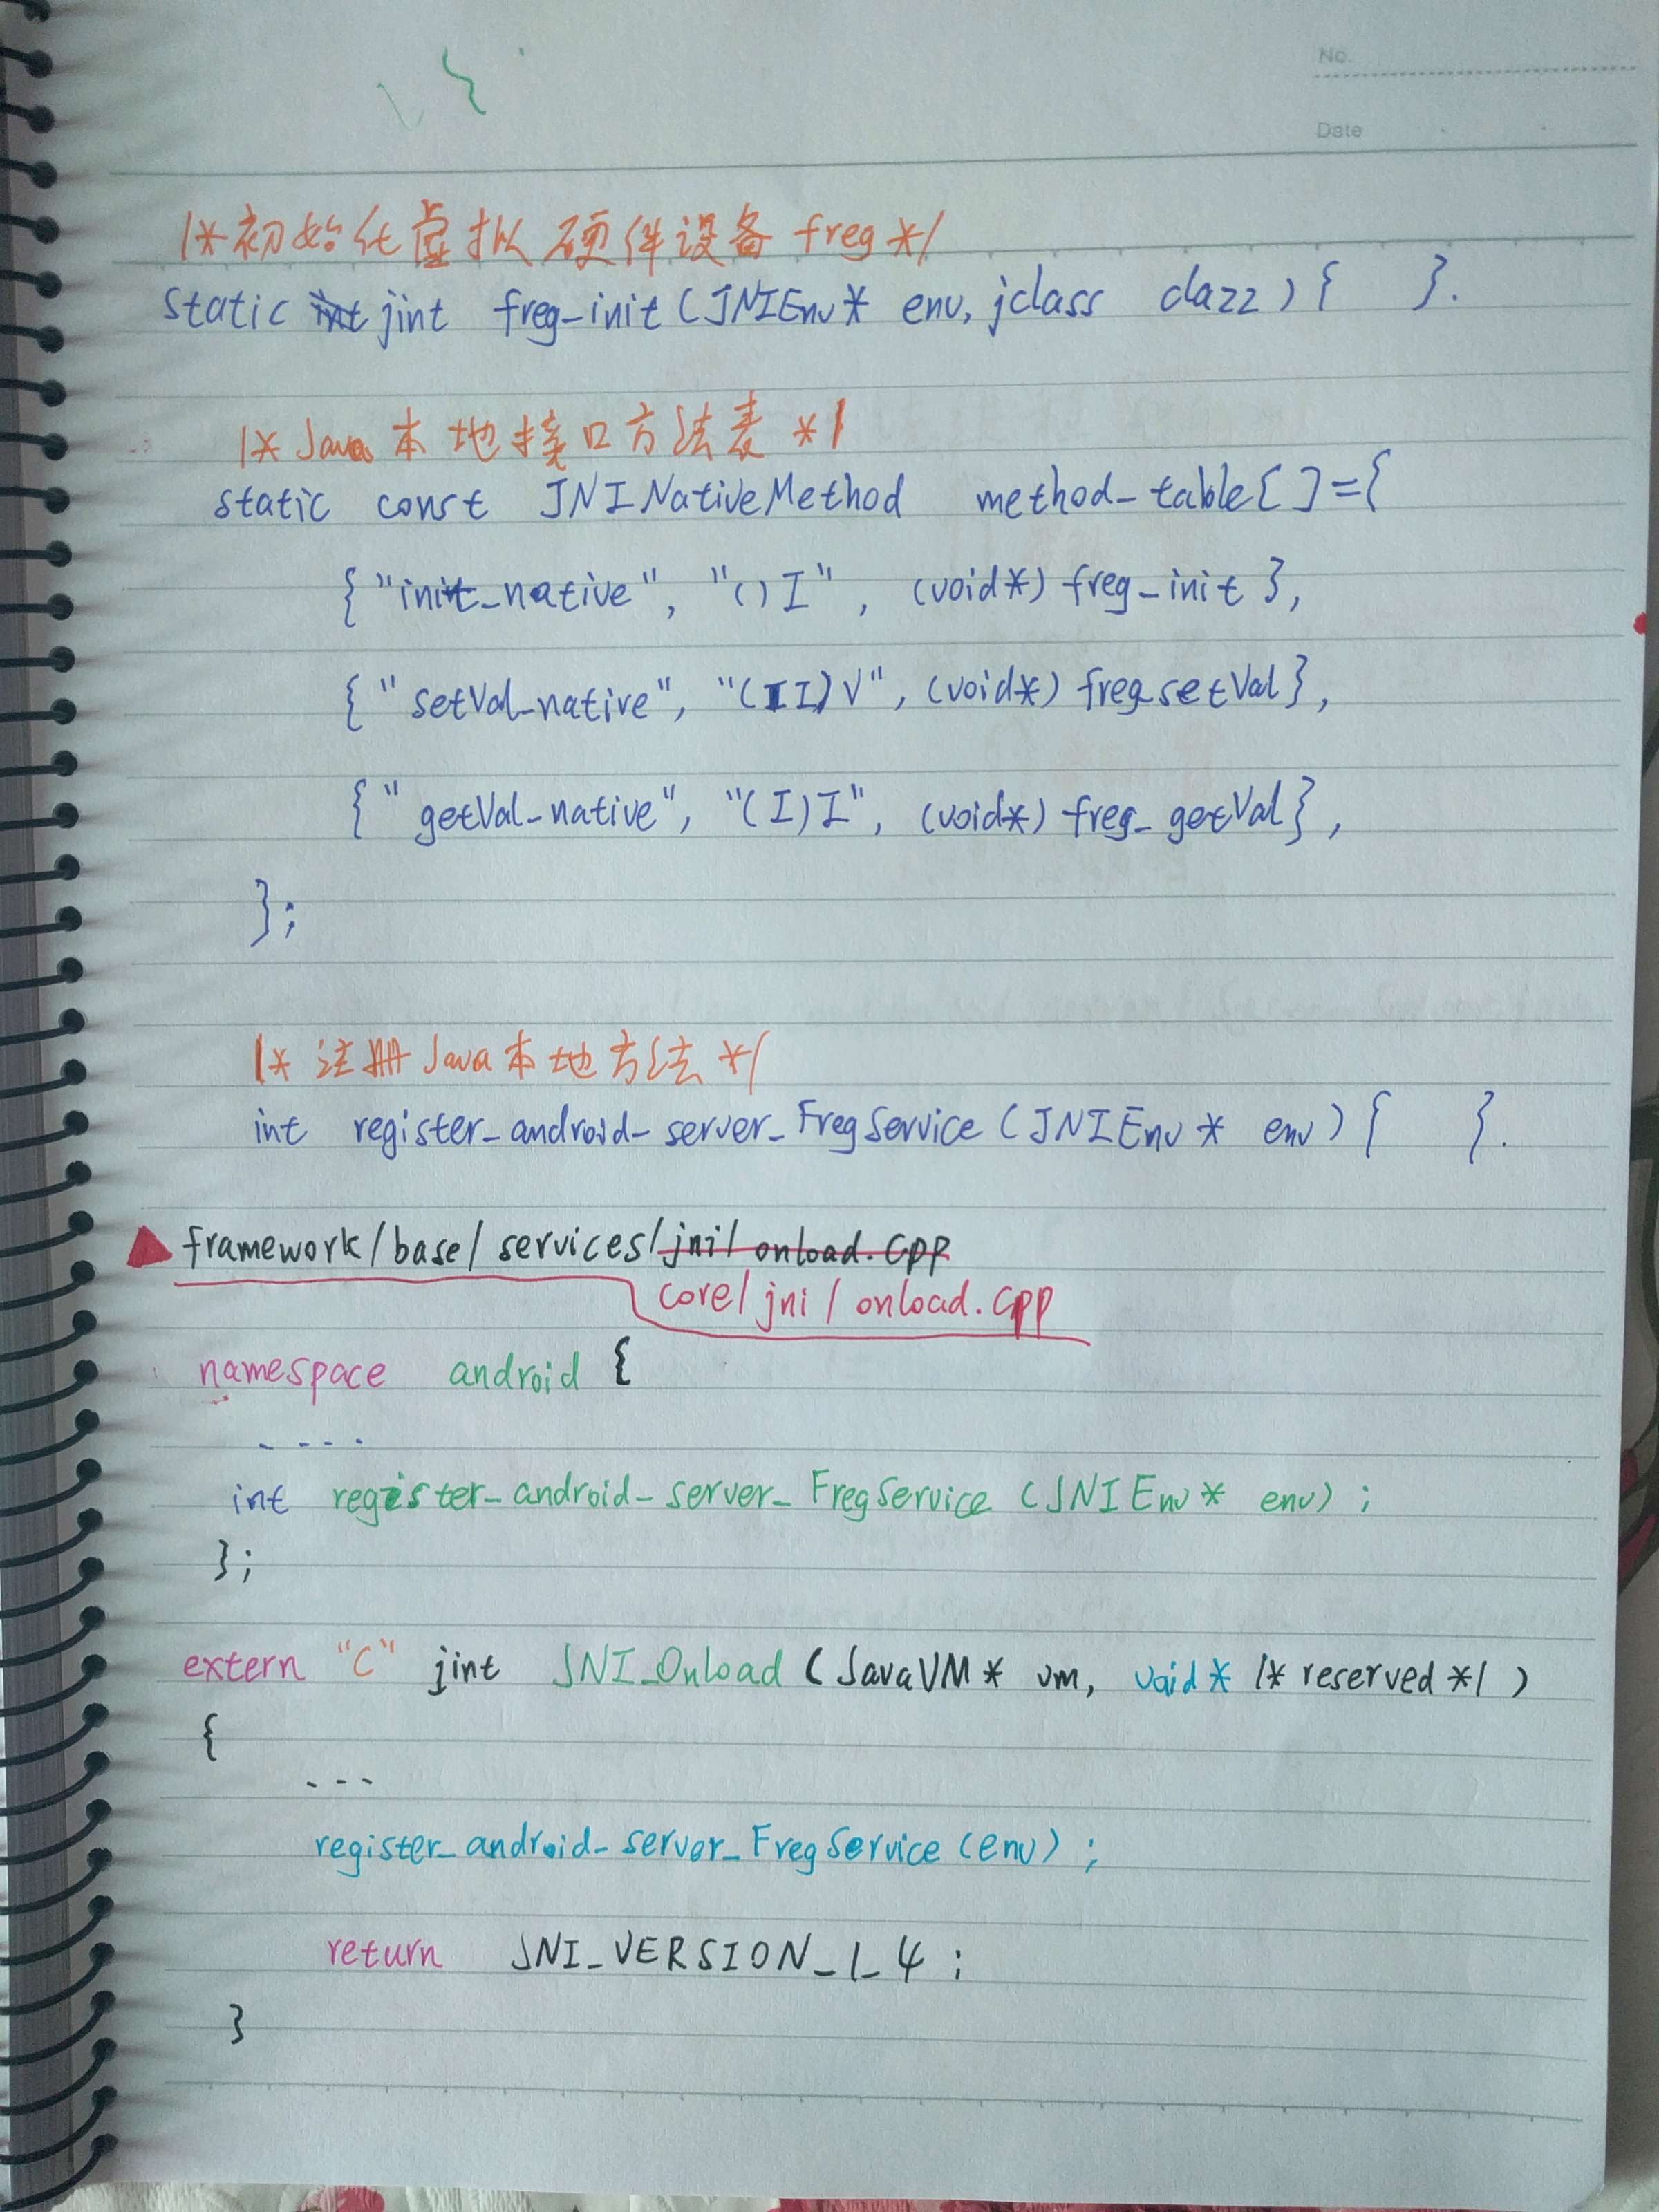 }
No.
Date
/*初始化虚拟硬件设备 freg */
static jint freg_init (JNIEnv* env, jclass clazz) {    }.
/* Java 本地接口方法表 */
static const JNINativeMethod method_table[]={
{"init_native", "()I", (void*) freg_init },
{"setVal_native", "(II)V", (void*) freg_setVal},
{"getVal_native", "(I)I", (void*) freg_getVal},
};
/* 注册 Java 本地方法 */
int register_android_server_FregService (JNIEnv* env) {    }.
framework/base/services/jni/onload.cpp
core/jni/onload.cpp
namespace android {
....
int register_android_server_FregService (JNIEnv* env) ;
};
extern "C" jint JNI_Onload (JavaVM* vm, void* /* reserved */ )
{
...
register_android_server_FregService (env) ;
return JNI_VERSION_1_4 ;
}